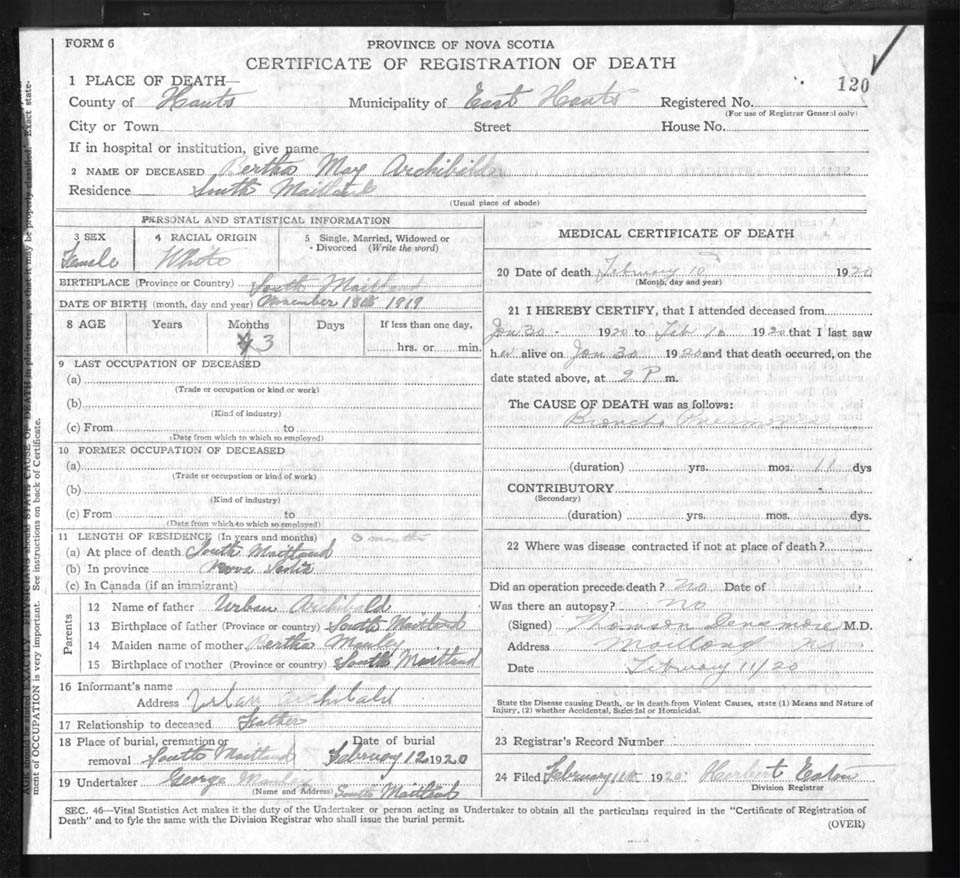 FORM 6
PROVINCE OF NOVA SCOTIA
CERTIFICATE OF REGISTRATION OF DEATH
120
1 PLACE OF DEATH—
County of Hants Municipality of East Hants Registered No.
(For use of Registrar General only)
City or Town Street House No.
If in hospital or institution, give name
2 NAME OF DECEASED Bertha May Archibald
Residence South Maitland
(Usual place of abode)
PERSONAL AND STATISTICAL INFORMATION
3 SEX 4 RACIAL ORIGIN 5 Single, Married, Widowed or Divorced (Write the word)
Female White
BIRTHPLACE (Province or Country) South Maitland
DATE OF BIRTH (month, day and year) November 18th 1919
8 AGE Years Months Days If less than one day,
3 hrs. or min.
9 LAST OCCUPATION OF DECEASED
(a)
(Trade or occupation or kind or work)
(b)
(Kind of industry)
(c) From to
(Date from which to which so employed)
10 FORMER OCCUPATION OF DECEASED
(a)
(Trade or occupation or kind of work)
(b)
(Kind of industry)
(c) From to
(Date from which to which so employed)
11 LENGTH OF RESIDENCE (In years and months) 3 months
(a) At place of death South Maitland
(b) In province Nova Scotia
(c) In Canada (if an immigrant)
Parents
12 Name of father Urban Archibald
13 Birthplace of father (Province or country) South Maitland
14 Maiden name of mother Bertha Manley
15 Birthplace of mother (Province or country) South Maitland
16 Informant's name
Address Urban Archibald
17 Relationship to deceased Father
18 Place of burial, cremation or removal South Maitland Date of burial February 12 1920
19 Undertaker George Manley
(Name and Address) South Maitland
MEDICAL CERTIFICATE OF DEATH
20 Date of death February 10 1920
(Month, day and year)
21 I HEREBY CERTIFY, that I attended deceased from
Jan 30 1920 to Feb 10 1920 that I last saw
her alive on Jan 30 1920 and that death occurred, on the
date stated above, at 9 P m.
The CAUSE OF DEATH was as follows:
Broncho Pneumonia
(duration) yrs. mos. 11 dys
CONTRIBUTORY
(Secondary)
(duration) yrs. mos. dys.
22 Where was disease contracted if not at place of death?
Did an operation precede death? No Date of
Was there an autopsy? No
(Signed) Thomson Densmore M.D.
Address Maitland NS
Date February 11/20
State the Disease causing Death, or in death from Violent Causes, state (1) Means and Nature of
Injury, (2) whether Accidental, Suicidal or Homicidal.
23 Registrar's Record Number
24 Filed February 11th 1920 Herbert Eaton
Division Registrar
SEC. 46—Vital Statistics Act makes it the duty of the Undertaker or person acting as Undertaker to obtain all the particulars required in the "Certificate of Registration of
Death" and to fyle the same with the Division Registrar who shall issue the burial permit.
(OVER)
AGE should be stated EXACTLY. PHYSICIANS should STATE CAUSE OF DEATH in plain terms, so that it may be properly classified. Exact state-
ment of OCCUPATION is very important. See instructions on back of Certificate.